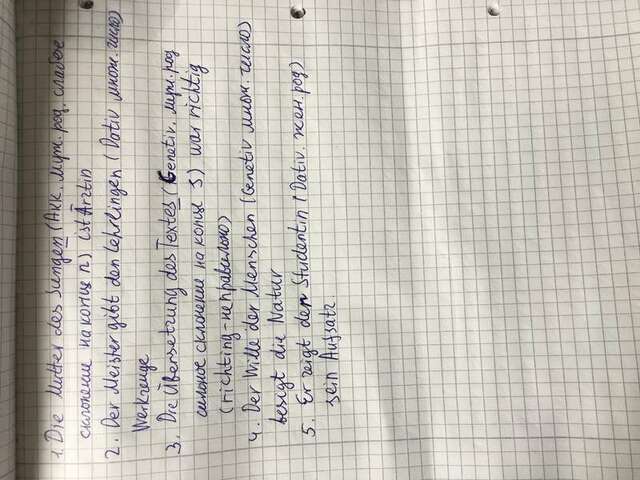 1. Die Mutter des Jungen (Akk. муж. род. слабое
склонение на конце n) ist Ärztin
2. Der Meister gibt den Lehrlingen (Dativ множ. число)
Werkzeuge
3. Die Übersetzung des Textes (Genetiv. муж. род
сильное склонение на конце s) war richtig
(richting - неправильно)
4. Der Wille der Menschen (Genetiv множ. число)
besigt die Natur
5. Er zeigt der Studentin (Dativ. жен. род)
sein Aufsatz